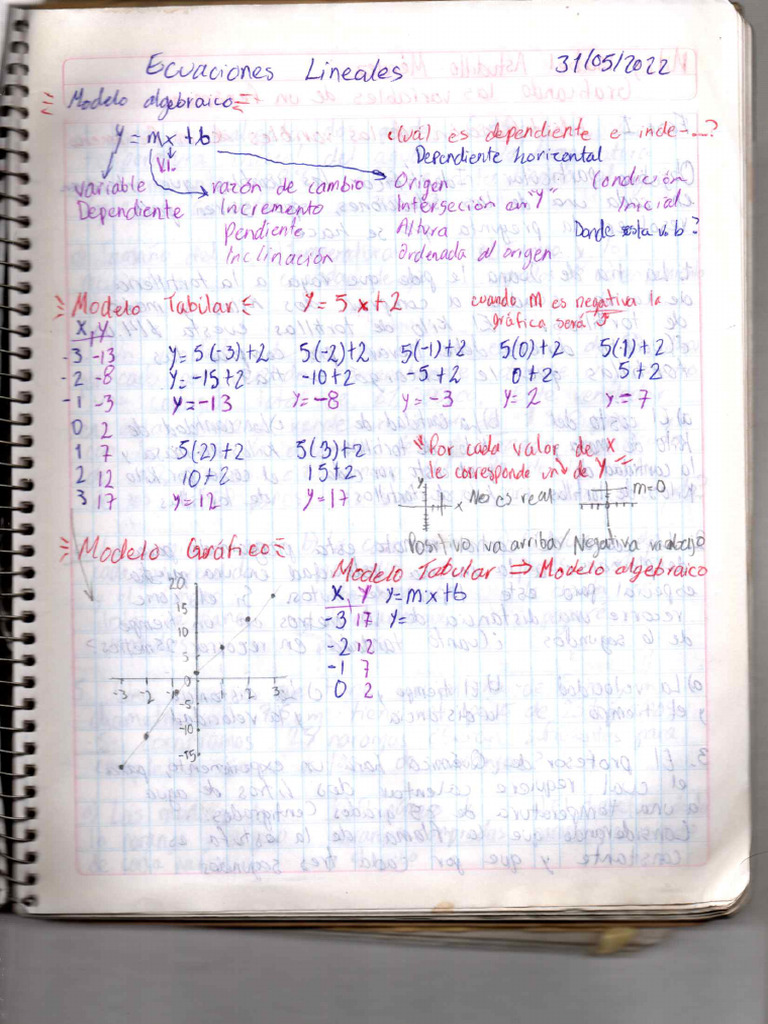 Ecuaciones Lineales 31/05/2022
Modelo algebraico
y = mx + b ¿Cuál es dependiente e inde-...?
V.I. Dependiente horizental
variable razón de cambio Origen Condición
Dependiente Incremento Interseción en "Y" Inicial
Pendiente Altura Donde esta b?
Inclinación Ordenada al origen
Modelo Tabular y = 5x+2 cuando m es negativa la
gráfica será
X Y
-3 -13 y=5(-3)+2 5(-2)+2 5(-1)+2 5(0)+2 5(1)+2
-2 -8 y=-15+2 -10+2 -5+2 0+2 5+2
-1 -3 y=-13 y=-8 y=-3 y=2 y=7
0 2
1 7 5(2)+2 5(3)+2 Por cada valor de X
2 12 10+2 15+2 le corresponde uno de Y
3 17 y=12 y=17 y x No es real m=0
Modelo Gráfico Positivo va arriba/Negativa va abajo
Modelo Tabular ⇒ Modelo algebraico
20
15
10
5
-3 -2 -1 1 2 3
-5
-10
-15
X Y y=mx+b
-3 17 y=
-2 12
-1 7
0 2